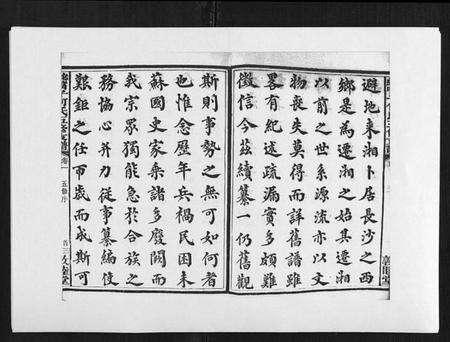 避地來湘卜居長沙之西
鄉是為遷湘之始其遷湘
以前之世系源流亦以文
物喪失莫得而詳舊譜雖
畧有紀述疏漏實多頗難
徵信今茲續纂一仍舊觀
斯則事勢之無可如何者
也惟念歷年兵禍民困未
蘇國史家乘諸多廢闕而
我宗眾獨能急於合族之
務協心并力從事纂編使
艱鉅之任帀歲而成斯可
卷一
五修序
敦睦堂